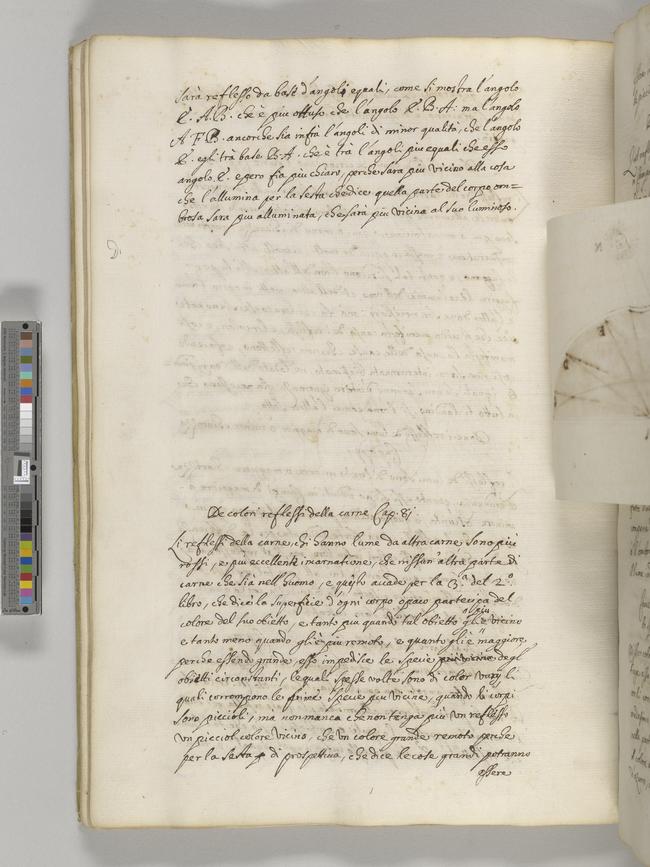 sarà reflesso da base d'angoli equali, come si mostra l'angolo
E. A. B. che è piu ottuso che l'angolo E. B. A. ma l'angolo
A F B. ancorche sia infra l'angoli di minor qualità, che l'angolo
E. egli trà base B. A. che è trà l'angoli piu equali che esso
angolo E. e pero fia piu chiaro, perche sarà piu vicino alla cosa
che l'allumina per la sesta che dice quella parte del corpo om=
brosa sarà piu alluminata, che sarà piu vicina al suo luminoso.
De colori reflessi della carne Cap. 81
Li reflessi della carne, chi hanno lume da altra carne sono piu
rossi, e piu eccellente incarnatione, che nissun' altra parte di
carne che sia nell'huomo, e questo accade per la 3.a del 2.o
libro, che dice la superficie d'ogni corpo opaco partecipa del
colore del suo obietto, e tanto piu quando tal obietto gli è piu vicino
e tanto meno quando gli è piu remoto, e quanto gli è maggiore,
perche essendo grande esso impedisce le specie degl'
obietti circonstanti, le quali spesse volte sono di color varij li
quali corrompono le prime specie piu vicine, quando li corpi
sono piccioli, ma non manca che non tenga piu un reflesso
un picciol colore vicino, che un colore grande remoto perche
per la sesta di prospettiva, che dice le cose grandi potranno
essere